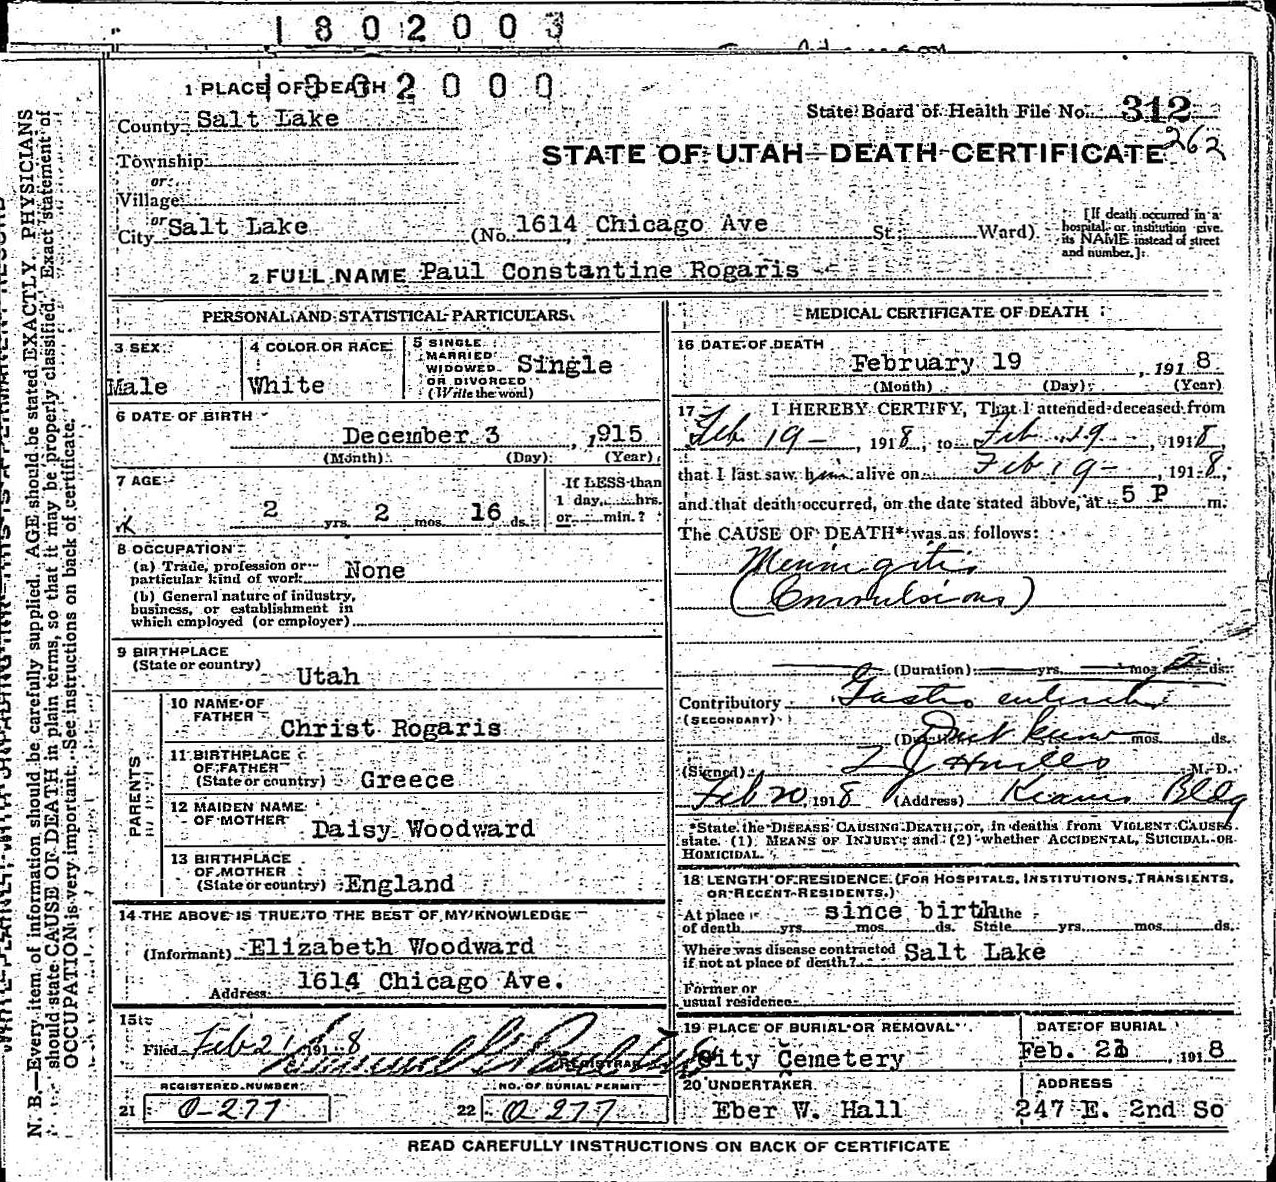 1 8 0 2 0 0 3
1 PLACE OF DEATH
County Salt Lake
State Board of Health File No. 312
262
Township
or
Village
STATE OF UTAH—DEATH CERTIFICATE
or
City Salt Lake (No. 1614 Chicago Ave St. Ward)
[If death occurred in a hospital or institution give its NAME instead of street and number.]
2 FULL NAME Paul Constantine Rogaris
PERSONAL AND STATISTICAL PARTICULARS
3 SEX Male
4 COLOR OR RACE White
5 SINGLE MARRIED WIDOWED OR DIVORCED (Write the word) Single
6 DATE OF BIRTH
December 3, 1915
(Month) (Day) (Year)
7 AGE
2 yrs. 2 mos. 16 ds.
If LESS than 1 day, hrs. or min.?
8 OCCUPATION
(a) Trade, profession or particular kind of work None
(b) General nature of industry, business, or establishment in which employed (or employer)
9 BIRTHPLACE
(State or country) Utah
PARENTS
10 NAME OF FATHER Christ Rogaris
11 BIRTHPLACE OF FATHER (State or country) Greece
12 MAIDEN NAME OF MOTHER Daisy Woodward
13 BIRTHPLACE OF MOTHER (State or country) England
14 THE ABOVE IS TRUE TO THE BEST OF MY KNOWLEDGE
(Informant) Elizabeth Woodward
Address 1614 Chicago Ave.
15
Filed Feb 21 1918
REGISTRAR
REGISTERED NUMBER
21 O-277
NO. OF BURIAL PERMIT
22 O-277
MEDICAL CERTIFICATE OF DEATH
16 DATE OF DEATH
February 19, 1918
(Month) (Day) (Year)
17 I HEREBY CERTIFY, That I attended deceased from
Feb 19, 1918, to Feb 19, 1918,
that I last saw him alive on Feb 19, 1918,
and that death occurred, on the date stated above, at 5 P m.
The CAUSE OF DEATH* was as follows:
Meningitis
(Convulsions)
(Duration) yrs. mos. ds.
Contributory Gastro enteritis
(SECONDARY)
(Duration) Dont know mos. ds.
(Signed) M. D.
Feb 20, 1918 (Address) Kearns Bldg
*State the DISEASE CAUSING DEATH, or, in deaths from VIOLENT CAUSES,
state (1) MEANS OF INJURY; and (2) whether ACCIDENTAL, SUICIDAL OR
HOMICIDAL.
18 LENGTH OF RESIDENCE (FOR HOSPITALS, INSTITUTIONS, TRANSIENTS,
OR RECENT RESIDENTS.)
At place of death yrs. mos. ds. since birth In the State yrs. mos. ds.
Where was disease contracted if not at place of death? Salt Lake
Former or usual residence
19 PLACE OF BURIAL OR REMOVAL City Cemetery
DATE OF BURIAL Feb. 21, 1918
20 UNDERTAKER Eber W. Hall
ADDRESS 247 E. 2nd So
READ CAREFULLY INSTRUCTIONS ON BACK OF CERTIFICATE
N. B.—Every item of information should be carefully supplied. AGE should be stated EXACTLY. PHYSICIANS
should state CAUSE OF DEATH in plain terms, so that it may be properly classified. Exact statement of
OCCUPATION is very important. See instructions on back of certificate.